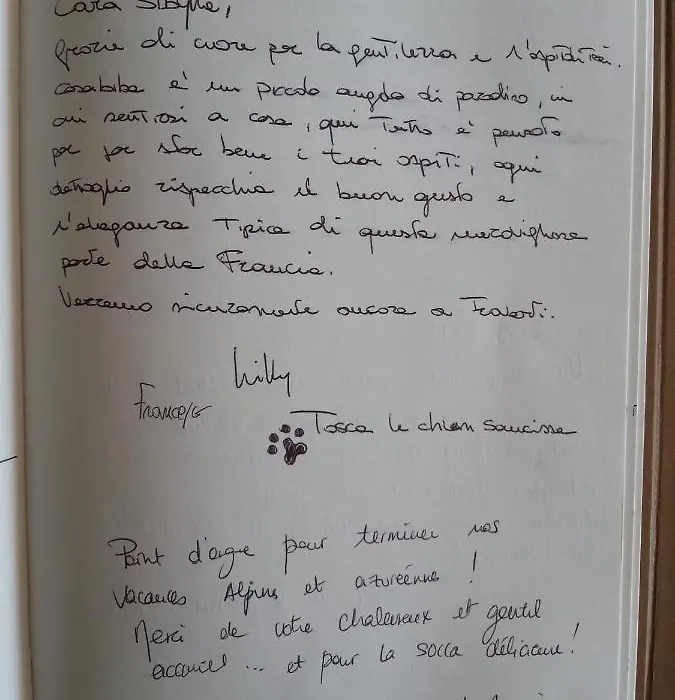 Cara Sibylle,
Grazie di cuore per la gentilezza e l'ospitalità.
Casabibe è un piccolo angolo di paradiso, in
cui sentirsi a casa, qui tutto è pensato
per far star bene i tuoi ospiti, ogni
dettaglio rispecchia il buon gusto e
l'eleganza tipica di questa meravigliosa
parte della Francia.
Verremo sicuramente ancora a trovarti.
Milly
Francesco
Tosca le chien saucisse
Point d'orgue pour terminer nos
vacances Alpins et azuréenne !
Merci de votre chaleureux et gentil
accueil ... et pour la socca délicieuse !